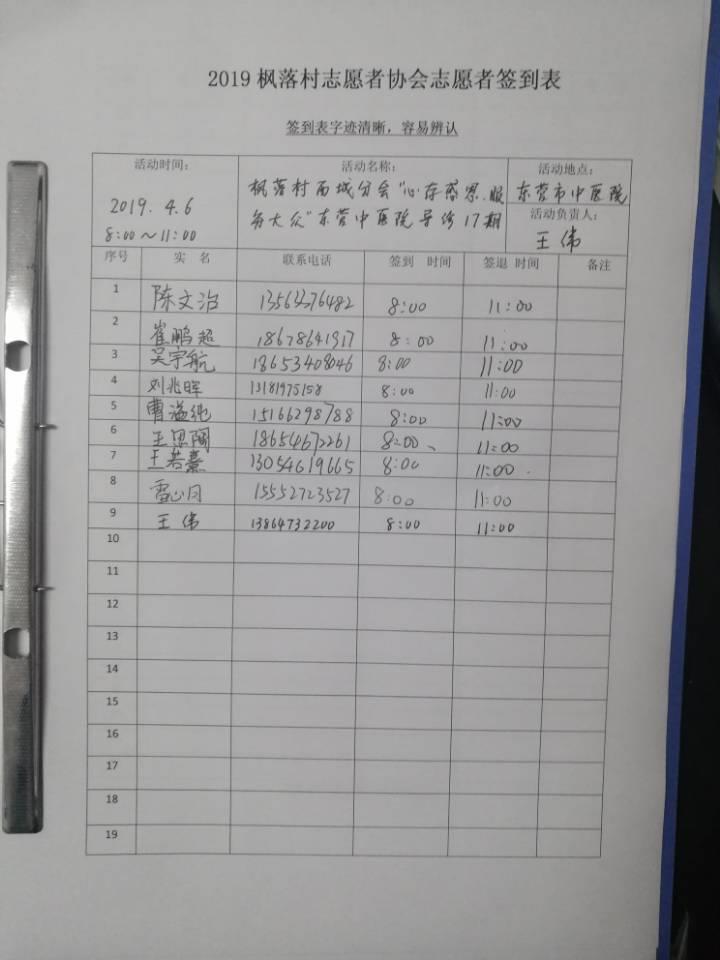 2019 枫落村志愿者协会志愿者签到表
签到表字迹清晰，容易辨认
活动时间： 活动名称： 活动地点：
2019. 4.6
8:00～11:00
枫落村西城分会“心存感恩.服
务大众”东营中医院导诊17期
东营市中医院
活动负责人：
王伟
序号 实 名 联系电话 签到 时间 签退 时间 备注
1 陈文治 13563376482 8:00 11:00
2 崔鹏超 18678641917 8:00 11:00
3 吴宇航 18653408046 8:00 11:00
4 刘兆晖 13181975158 8:00 11:00
5 曹溢纯 15166298788 8:00 11:00
6 王思陶 18654672261 8:00、 11:00
7 王若熹 13054619665 8:00 11:00.
8 雷心月 15552723527 8:00 11:00
9 王伟 13864732200 8:00 11:00
10
11
12
13
14
15
16
17
18
19